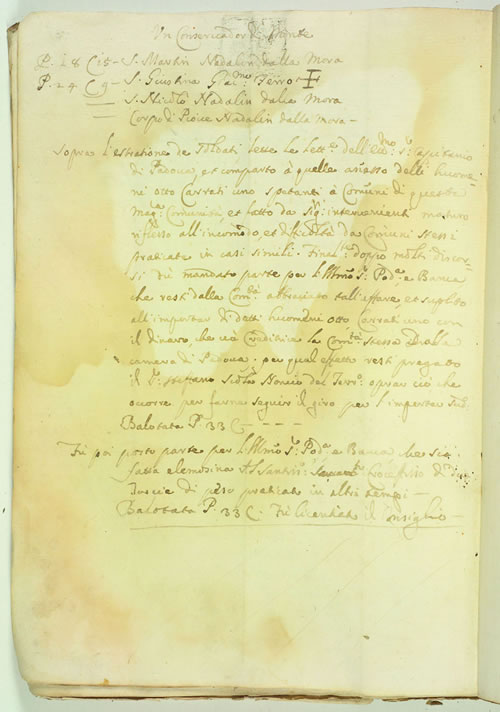 Un Conservador di Monte
P. 28 C 15 - S. Martin Nadalin dalla Mora
P. 24 C 9 - S. Giustina Ferro
S. Nicolò Nadalin dalla Mora
Corpo di Piove Nadalin dalla Mora -
Sopra l'estratione de soldati lesse le lett.e dell' s.r Capitanio
di Padova, et comparto à quelle annesso delli huome-
ni otto Carrati uno spetanti à Comuni di questa
Mag.ca Comunità et fatto da Sig.ri intervenienti maturo
riflesso all'incomodo, et dificoltà da Comuni stessi
praticate in casi simili. Final.te doppo molti discor-
si fù mandato parte per l'Ill.mo S.r Pod.à e Banca
che resti dalla Com.tà abbraciato tall'affare, et suplito
all'importar di detti huomeni otto Carrati uno con
il dinaro, che và Creditrice la Com.tà stessa dalla
camera di Padova. per qual effetto resti pregato
il S.r Steffano Noncio del Terr.o oprar ciò che
occorre per farne seguir il giro per l'importar
Balotata P. 33 C - - - -
Fù poi posto parte per l'Ill.mo S.r Pod.à e Banca che sia
fatta elemosina Crocefisso
di peso praticato in altri tempi -
Balotata P. 33 C. Fù licentiato il Consiglio -